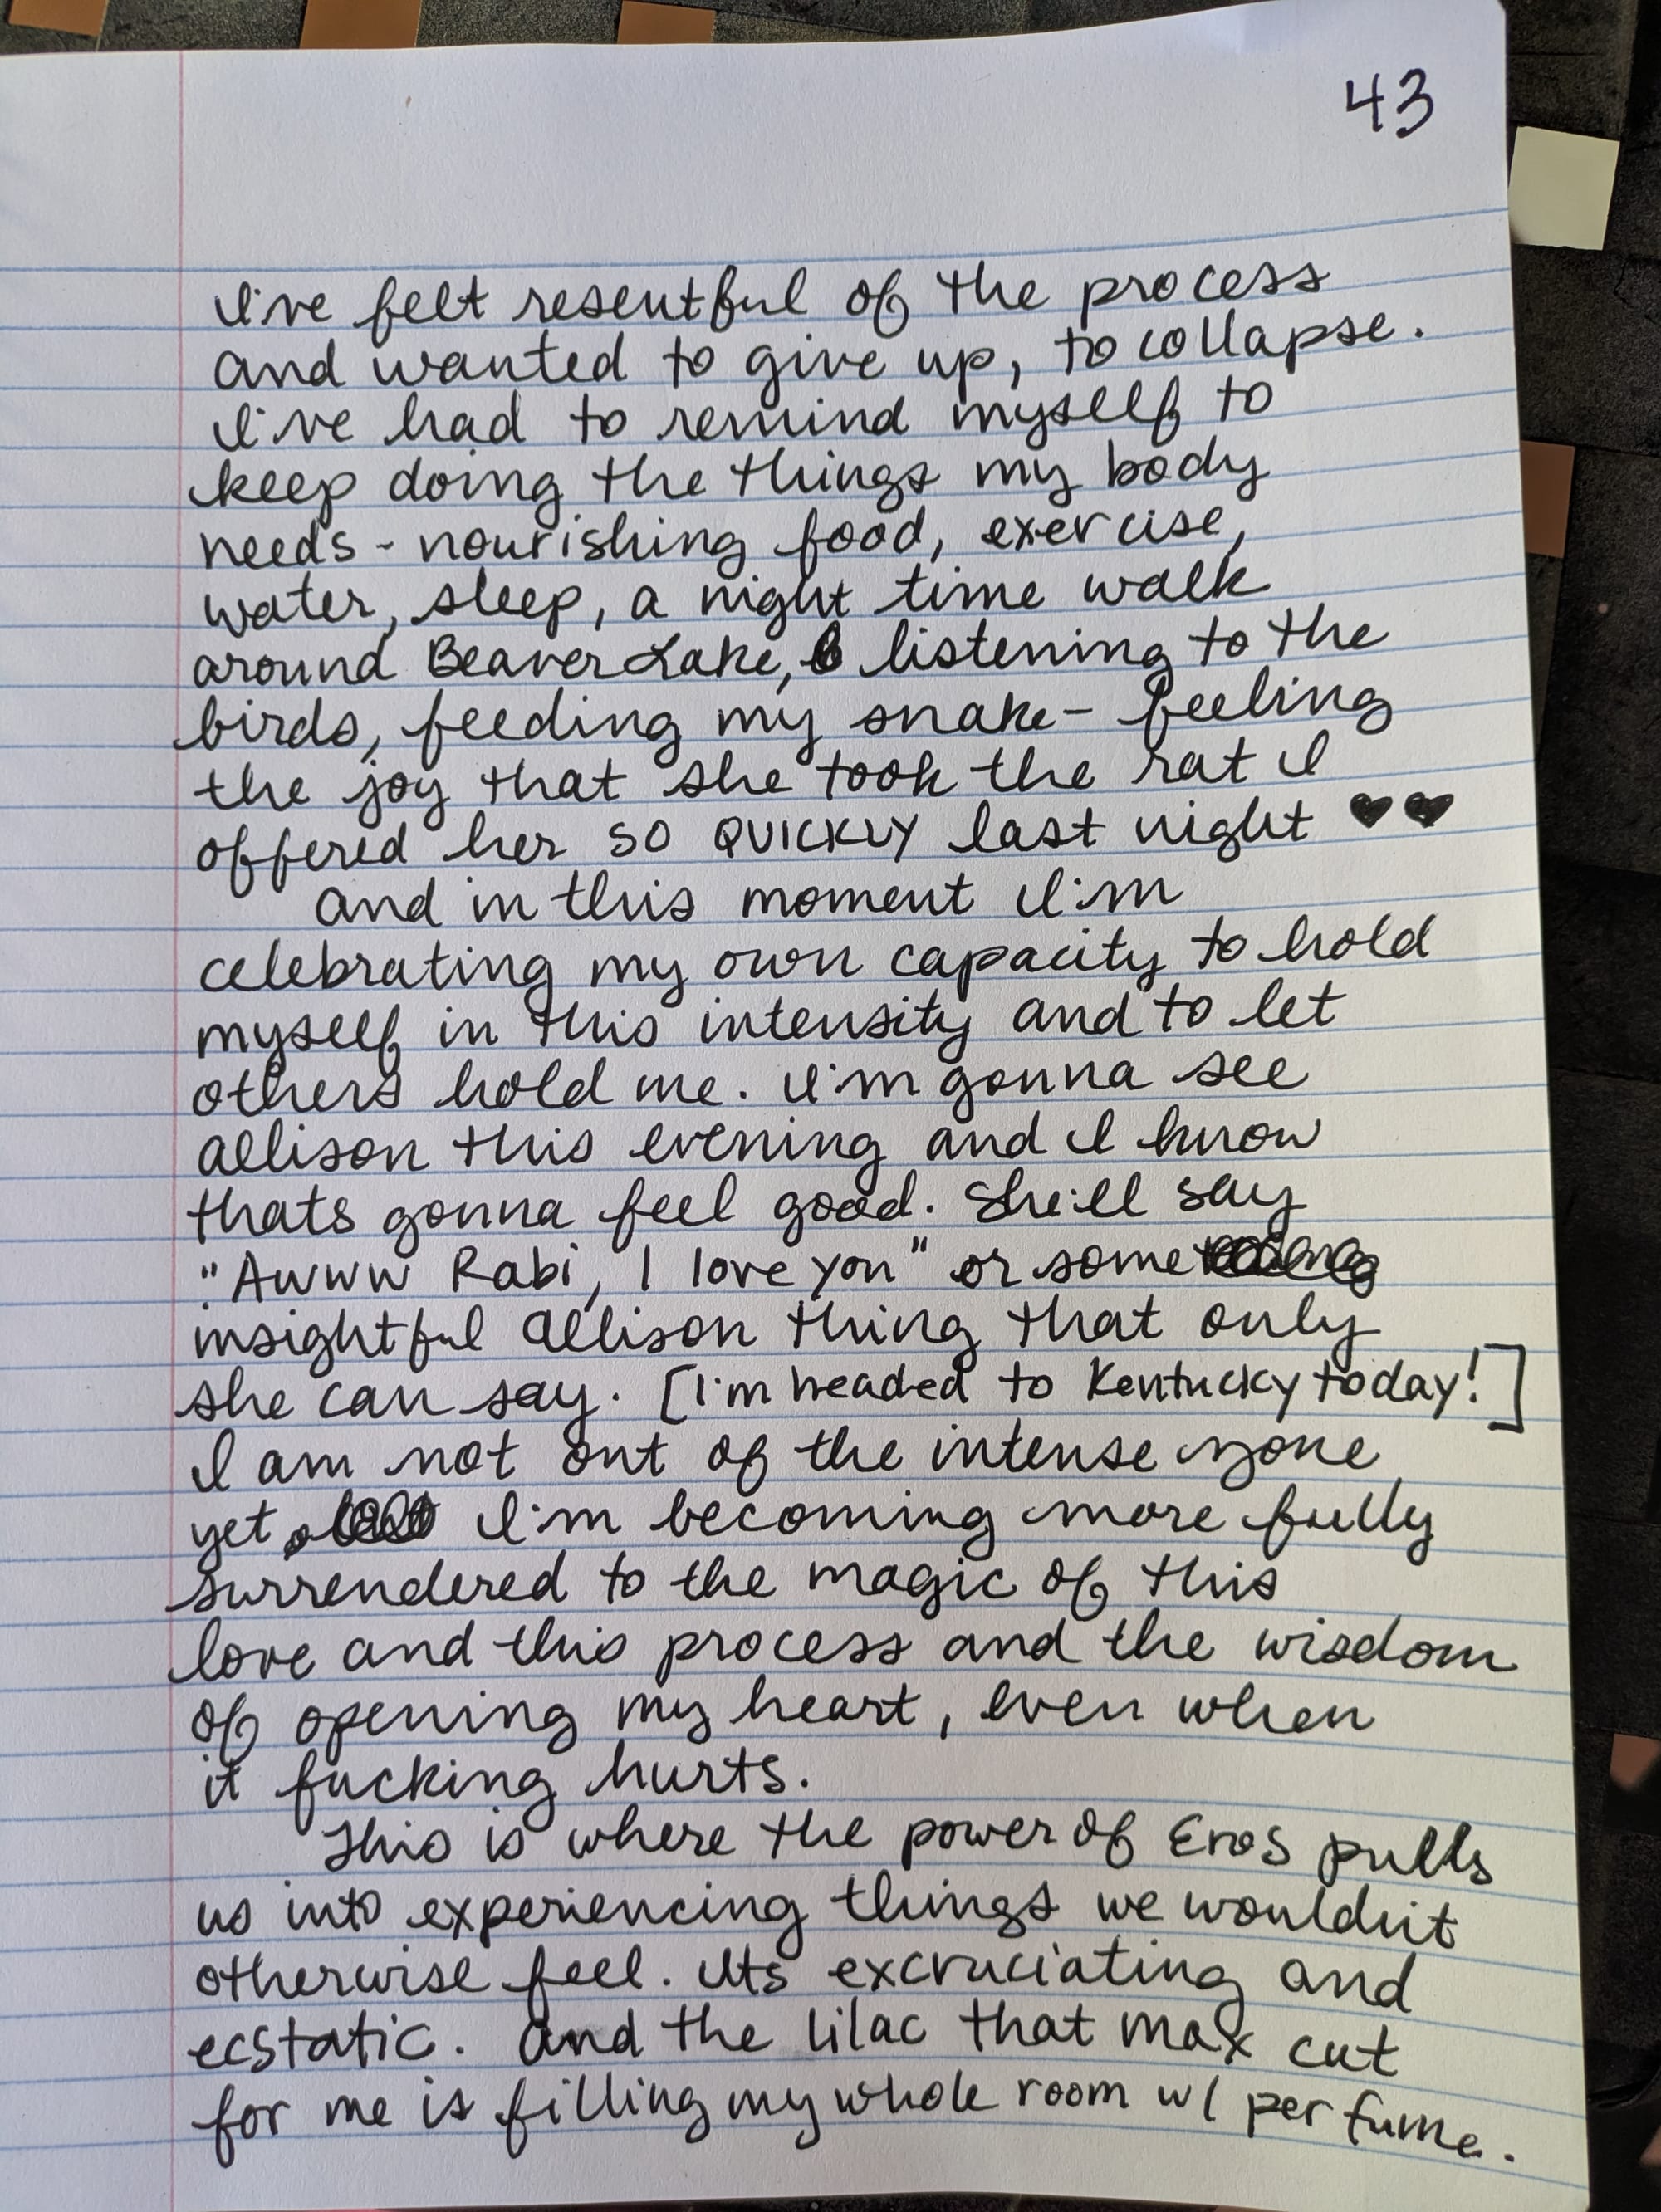 43
I've felt resentful of the process
and wanted to give up, to collapse.
I've had to remind myself to
keep doing the things my body
needs - nourishing food, exercise,
water, sleep, a night time walk
around Beaver Lake, listening to the
birds, feeding my snake - feeling
the joy that she took the rat I
offered her SO QUICKLY last night ♥♥
And in this moment I'm
celebrating my own capacity to hold
myself in this intensity and to let
others hold me. I'm gonna see
Allison this evening and I know
thats gonna feel good. She'll say
"Awww Rabi, I love you" or some
insightful Allison thing that only
she can say. [I'm headed to Kentucky today!]
I am not out of the intense zone
yet, I'm becoming more fully
surrendered to the magic of this
love and this process and the wisdom
of opening my heart, even when
it fucking hurts.
This is where the power of Eros pulls
us into experiencing things we wouldn't
otherwise feel. Its excruciating and
ecstatic. And the lilac that Max cut
for me is filling my whole room w/ perfume.